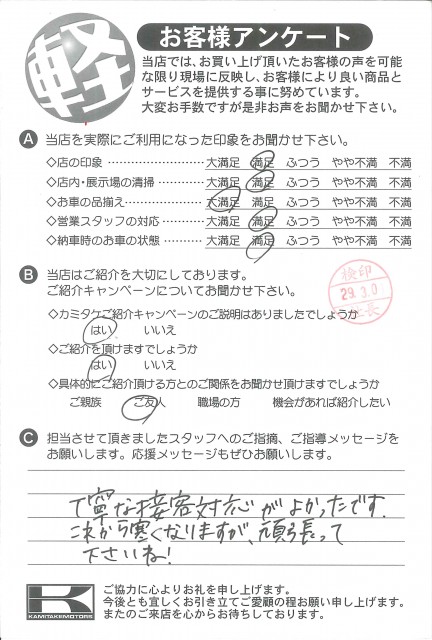 軽
お客様アンケート
当店では、お買い上げ頂いたお客様の声を可能
な限り現場に反映し、お客様により良い商品と
サービスを提供する事に努めています。
大変お手数ですが是非お声をお聞かせ下さい。
A 当店を実際にご利用になった印象をお聞かせ下さい。
◇店の印象 ………………… 大満足 満足 ふつう やや不満 不満
◇店内・展示場の清掃 ………… 大満足 満足 ふつう やや不満 不満
◇お車の品揃え ……………… 大満足 満足 ふつう やや不満 不満
◇営業スタッフの対応 ………… 大満足 満足 ふつう やや不満 不満
◇納車時のお車の状態 ………… 大満足 満足 ふつう やや不満 不満
B 当店はご紹介を大切にしております。
ご紹介キャンペーンについてお聞かせ下さい。
検印
29.3.0
長
◇カミタケご紹介キャンペーンのご説明はありましたでしょうか
はい いいえ
◇ご紹介を頂けますでしょうか
はい いいえ
◇具体的にご紹介頂ける方とのご関係をお聞かせ頂けますでしょうか
ご親族 ご友人 職場の方 機会があれば紹介したい
C 担当させて頂きましたスタッフへのご指摘、ご指導メッセージを
お願いします。応援メッセージもぜひお願いします。
丁寧な接客対応がよかったです。
これから寒くなりますが、頑張って
下さいね!
KAMITAKEMOTORS
ご協力に心よりお礼を申し上げます。
今後とも宜しくお引き立てご愛顧の程お願い申し上げます。
またのご来店を心からお待ちしております。